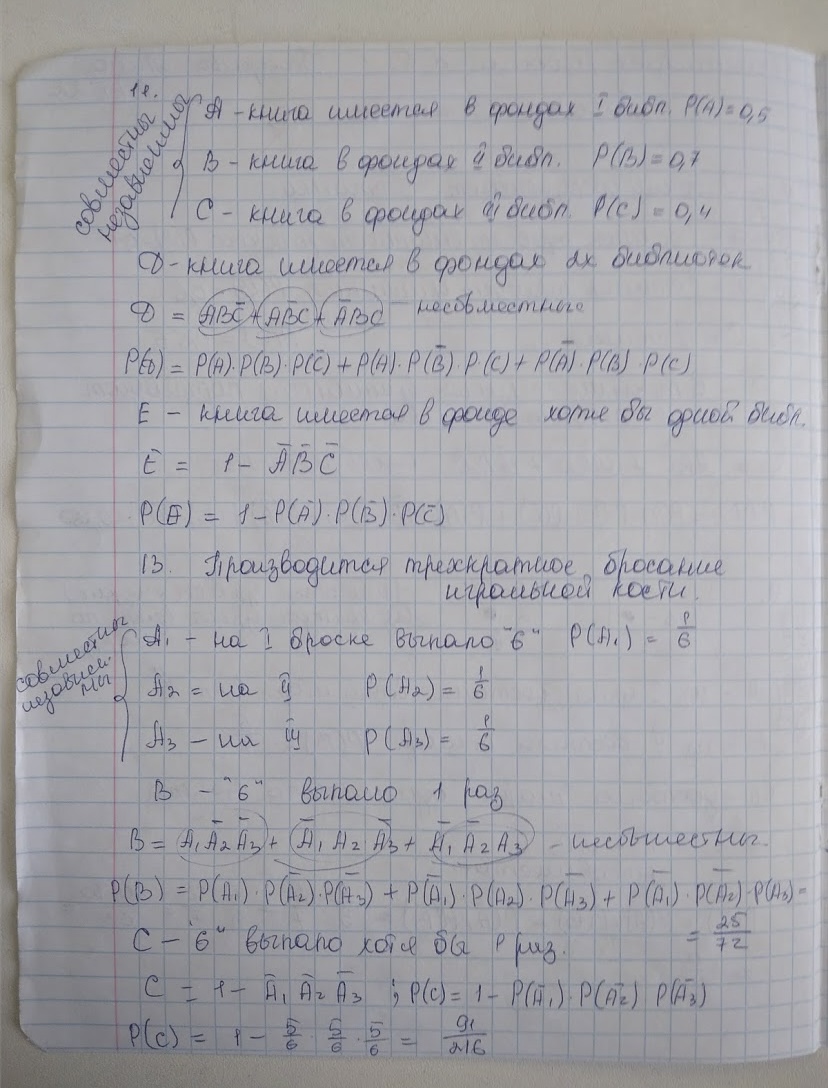 11.
совместны
независимы
А - книга имеется в фондах I библ. P(A)=0,5
В - книга в фондах II библ. P(B)=0,7
С - книга в фондах III библ. P(C)=0,4
D - книга имеется в фондах 2х библиотек
D = ABC̄ + AB̄C + ĀBC - несовместные
P(D) = P(A)·P(B)·P(C̄) + P(A)·P(B̄)·P(C) + P(Ā)·P(B)·P(C)
Е - книга имеется в фонде хотя бы одной библ.
Ē = 1 - Ā B̄ C̄
P(E) = 1 - P(Ā)·P(B̄)·P(C̄)
13. Производится трехкратное бросание
игральной кости.
совместны
независи-
мы
A₁ - на I броске выпало "6" P(A₁) = 1/6
A₂ = на II P(A₂) = 1/6
A₃ - на III P(A₃) = 1/6
В - "6" выпало 1 раз
B = A₁Ā₂Ā₃ + Ā₁A₂Ā₃ + Ā₁Ā₂A₃ - несовместны.
P(B) = P(A₁)·P(Ā₂)·P(Ā₃) + P(Ā₁)·P(A₂)·P(Ā₃) + P(Ā₁)·P(Ā₂)·P(A₃) =
= 25/72
С - "6" выпало хотя бы 1 раз.
C = 1 - Ā₁ Ā₂ Ā₃ ; P(C) = 1 - P(Ā₁)·P(Ā₂) P(Ā₃)
P(C) = 1 - 5/6 · 5/6 · 5/6 = 91/216